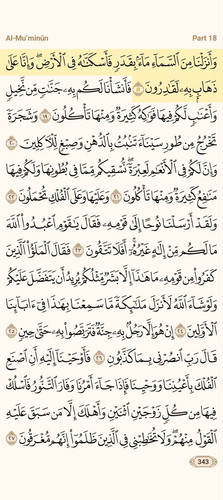 Al-Mu'minūn Part 18
وَأَنزَلْنَا مِنَ ٱلسَّمَآءِ مَآءًۢ بِقَدَرٍ فَأَسْكَنَّـٰهُ فِى ٱلْأَرْضِ ۖ وَإِنَّا عَلَىٰ
ذَهَابٍۭ بِهِۦ لَقَـٰدِرُونَ ١٨ فَأَنشَأْنَا لَكُم بِهِۦ جَنَّـٰتٍ مِّن نَّخِيلٍ
وَأَعْنَـٰبٍ لَّكُمْ فِيهَا فَوَٰكِهُ كَثِيرَةٌ وَمِنْهَا تَأْكُلُونَ ١٩ وَشَجَرَةً
تَخْرُجُ مِن طُورِ سَيْنَآءَ تَنۢبُتُ بِٱلدُّهْنِ وَصِبْغٍ لِّلْـَٔاكِلِينَ ٢٠
وَإِنَّ لَكُمْ فِى ٱلْأَنْعَـٰمِ لَعِبْرَةً ۖ نُّسْقِيكُم مِّمَّا فِى بُطُونِهَا وَلَكُمْ فِيهَا
مَنَـٰفِعُ كَثِيرَةٌ وَمِنْهَا تَأْكُلُونَ ٢١ وَعَلَيْهَا وَعَلَى ٱلْفُلْكِ تُحْمَلُونَ ٢٢
وَلَقَدْ أَرْسَلْنَا نُوحًا إِلَىٰ قَوْمِهِۦ فَقَالَ يَـٰقَوْمِ ٱعْبُدُوا۟ ٱللَّهَ
مَا لَكُم مِّنْ إِلَـٰهٍ غَيْرُهُۥٓ ۖ أَفَلَا تَتَّقُونَ ٢٣ فَقَالَ ٱلْمَلَؤُا۟ ٱلَّذِينَ
كَفَرُوا۟ مِن قَوْمِهِۦ مَا هَـٰذَآ إِلَّا بَشَرٌ مِّثْلُكُمْ يُرِيدُ أَن يَتَفَضَّلَ عَلَيْكُمْ
وَلَوْ شَآءَ ٱللَّهُ لَأَنزَلَ مَلَـٰٓئِكَةً مَّا سَمِعْنَا بِهَـٰذَا فِىٓ ءَابَآئِنَا
ٱلْأَوَّلِينَ ٢٤ إِنْ هُوَ إِلَّا رَجُلٌۢ بِهِۦ جِنَّةٌ فَتَرَبَّصُوا۟ بِهِۦ حَتَّىٰ حِينٍ ٢٥
قَالَ رَبِّ ٱنصُرْنِى بِمَا كَذَّبُونِ ٢٦ فَأَوْحَيْنَآ إِلَيْهِ أَنِ ٱصْنَعِ
ٱلْفُلْكَ بِأَعْيُنِنَا وَوَحْيِنَا فَإِذَا جَآءَ أَمْرُنَا وَفَارَ ٱلتَّنُّورُ ۙ فَٱسْلُكْ
فِيهَا مِن كُلٍّ زَوْجَيْنِ ٱثْنَيْنِ وَأَهْلَكَ إِلَّا مَن سَبَقَ عَلَيْهِ
ٱلْقَوْلُ مِنْهُمْ ۖ وَلَا تُخَـٰطِبْنِى فِى ٱلَّذِينَ ظَلَمُوٓا۟ ۖ إِنَّهُم مُّغْرَقُونَ ٢٧
343